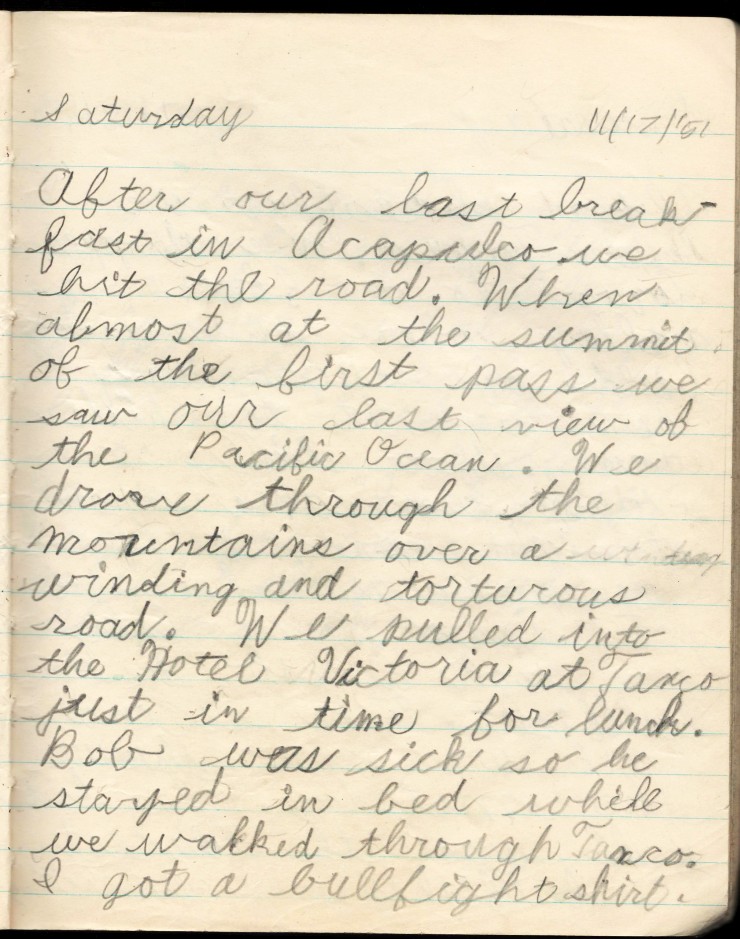 Saturday 11/17/'51
After our last break-
fast in Acapulco we
hit the road. When
almost at the summit
of the first pass we
saw our last view of
the Pacific Ocean. We
drove through the
mountains over a
winding and torturous
road. We pulled into
the Hotel Victoria at Taxco
just in time for lunch.
Bob was sick so he
stayed in bed while
we walked through Taxco.
I got a bullfight shirt.